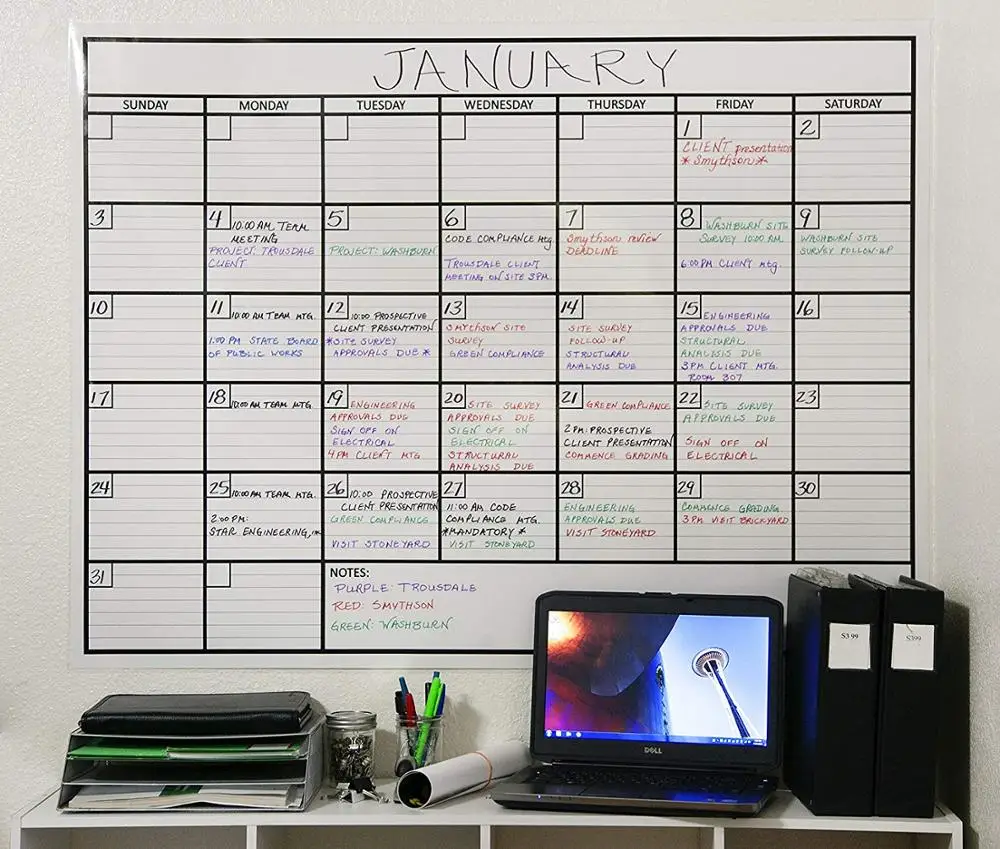 JANUARY
SUNDAY MONDAY TUESDAY WEDNESDAY THURSDAY FRIDAY SATURDAY
1
CLIENT presentation
* Smythson *
2
3
4 10:00 AM TEAM
MEETING
PROJECT: TROUSDALE
CLIENT
5
PROJECT: WASHBURN
6
CODE COMPLIANCE mtg.
TROUSDALE CLIENT
MEETING ON SITE 3PM.
7
Smythson review
DEADLINE
8 WASHBURN SITE
SURVEY 10:00 AM
6:00 PM CLIENT mtg.
9
WASHBURN SITE
SURVEY FOLLOW-UP
10
11 10:00 AM TEAM MTG.
1:00 PM STATE BOARD
OF PUBLIC WORKS
12 10:00 PROSPECTIVE
CLIENT PRESENTATION
*SITE SURVEY
APPROVALS DUE *
13
SMYTHSON SITE
SURVEY
GREEN COMPLIANCE
14
SITE SURVEY
FOLLOW-UP
STRUCTURAL
ANALYSIS DUE
15 ENGINEERING
APPROVALS DUE
STRUCTURAL
ANALYSIS DUE
3PM CLIENT MTG.
ROOM 307
16
17
18 10:00 AM TEAM MTG.
19 ENGINEERING
APPROVALS DUE
SIGN OFF ON
ELECTRICAL
4PM CLIENT MTG
20 SITE SURVEY
APPROVALS DUE
SIGN OFF ON
ELECTRICAL
STRUCTURAL
ANALYSIS DUE
21 GREEN COMPLIANCE
2PM: PROSPECTIVE
CLIENT PRESENTATION
COMMENCE GRADING
22 SITE SURVEY
APPROVALS DUE
SIGN OFF ON
ELECTRICAL
23
24
25 10:00 AM TEAM MTG.
2:00 PM:
STAR ENGINEERING,
26 10:00 PROSPECTIVE
CLIENT PRESENTATION
GREEN COMPLIANCE
VISIT STONEYARD
27
11:00 AM CODE
COMPLIANCE MTG.
*MANDATORY *
VISIT STONEYARD
28
ENGINEERING
APPROVALS DUE
VISIT STONEYARD
29
COMMENCE GRADING
3PM VISIT BRICKYARD
30
31
NOTES:
PURPLE: TROUSDALE
RED: SMYTHSON
GREEN: WASHBURN
S3 99
S399
DELL